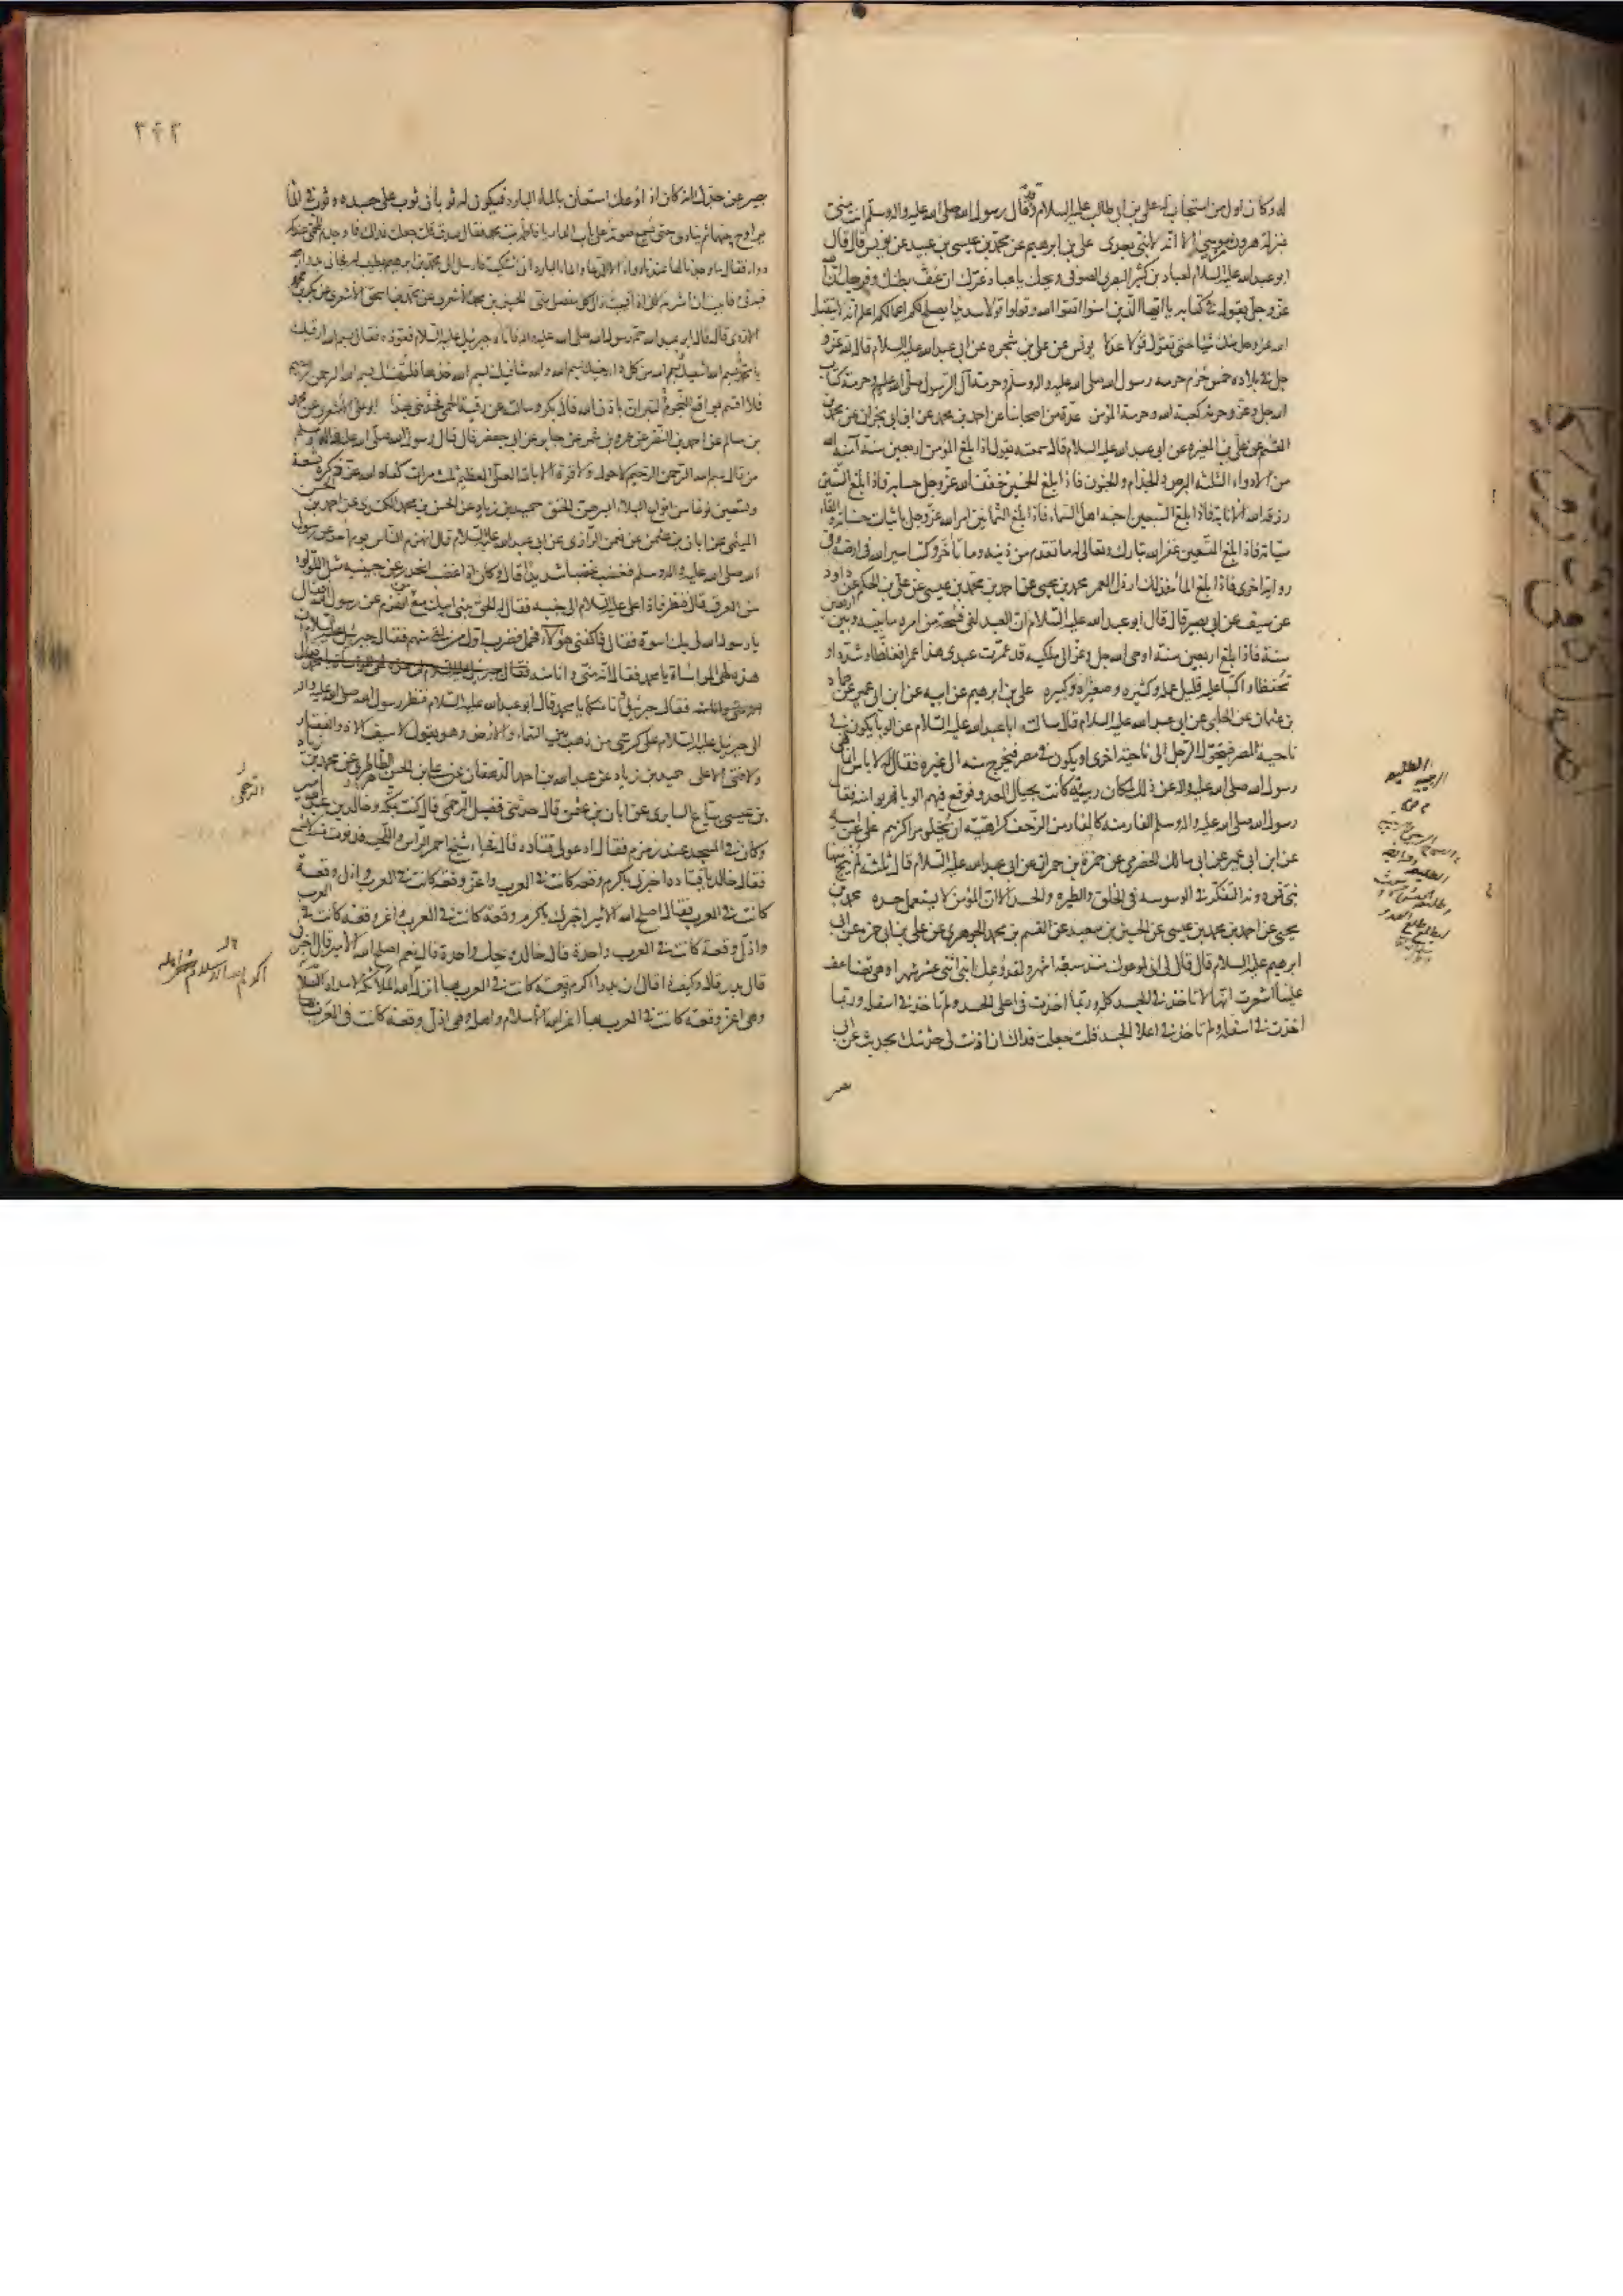 له وكان اول من استجاب له على بن ابى طالب عليه السلام وقد قال رسول الله صلى الله عليه واله وسلم انت منى
بمنزلة هرون من موسى الا انه لا نبى بعدى على بن ابرهيم عن محمد بن عيسى بن عبيد عن يونس قال قال
ابو عبد الله عليه السلام لعباد بن كثير البصرى الصوفى ويحك يا عباد غرك ان عف بطنك وفرجك ان الله
عز وجل يقول فى كتابه يا ايها الذين امنوا اتقوا الله وقولوا قولا سديدا يصلح لكم اعمالكم اعلم انه لا يتقبل
الله عز وجل منك شيئا حتى تقول قولا عدلا يونس عن على بن شجره عن ابى عبد الله عليه السلام قال لله عز و
جل فى بلاده خمس حرم حرمة رسول الله صلى الله عليه واله وسلم وحرمة آل الرسول صلى الله عليهم وحرمة كتاب
الله جل وعز وحرمة كعبة الله وحرمة المؤمن عدة من اصحابنا عن احمد بن محمد عن ابن ابى نجران عن محمد بن
القسم عن على بن المغيرة عن ابى عبد الله عليه السلام قال سمعته يقول اذا بلغ المؤمن اربعين سنة آمنه الله
من الادواء الثلثة البرص والجذام والجنون فاذا بلغ الخمسين خفف الله عز وجل حسابه فاذا بلغ الستين
رزقه الله الانابة فاذا بلغ السبعين احبه اهل السماء فاذا بلغ الثمانين امر الله عز وجل باثبات حسناته والقاء
سيئاته فاذا بلغ التسعين غفر الله تبارك وتعالى له ما تقدم من ذنبه وما تاخر وكتب اسير الله فى ارضه وفى
رواية اخرى فاذا بلغ المائة فذلك ارذل العمر محمد بن يحيى عن احمد بن محمد بن عيسى عن على بن الحكم عن داود
عن سيف عن ابى بصير قال قال ابو عبد الله عليه السلام ان العبد لفى فسحة من امره ما بينه وبين اربعين
سنة فاذا بلغ اربعين سنة اوحى الله جل وعز الى ملكيه قد عمرت عبدى هذا عمرا فغلظا وشددا و
تحفظا واكتبا عليه قليل عمله وكثيره وصغيره وكبيره على بن ابرهيم عن ابيه عن ابن ابى عمير عن حماد
بن عثمان عن الحلبى عن ابى عبد الله عليه السلام قال سالت ابا عبد الله عليه السلام عن الوبا يكون فى
ناحية المصر فيتحول الرجل الى ناحية اخرى او يكون فى مصر فيخرج منه الى غيره فقال لا باس انما نهى
رسول الله صلى الله عليه واله عن ذلك لمكان ربيئة كانت بحيال العدو فوقع فيهم الوبا فهربوا منه فقال
رسول الله صلى الله عليه واله وسلم الفار منه كالفار من الزحف كراهية ان يخلو مراكزهم على عن ابيه
عن ابن ابى عمير عن ابى مالك الحضرمى عن حمزة بن حمران عن ابى عبد الله عليه السلام قال ثلثة لم ينج منها
نبى فمن دونه التفكر فى الوسوسه فى الخلق والطيره والحسد الا ان المؤمن لا يستعمل حسده محمد بن
يحيى عن احمد بن محمد بن عيسى عن الحسين بن سعيد عن القسم بن محمد الجوهرى عن على بن ابى حمزه عن ابى
ابرهيم عليه السلام قال قال لى انى لموعوك منذ سبعة اشهر ولقد وعك ابنى اثنى عشر شهرا وهى تضاعف
علينا اشعرت انها لا تاخذ فى الجسد كله وربما اخذت فى اعلى الجسد ولم تاخذ فى اسفله وربما
اخذت فى اسفله ولم تاخذ فى اعلا الجسد قلت جعلت فداك ان اذنت لى حدثتك بحديث عن ابى
بصير
٣٤٢
بصير عن جدك انه كان اذا وعك استعان بالماء البارد فيكون له ثوبان ثوب فى الماء وثوب على جسده
يراوح بينهما ثم ينادى حتى يسمع صوته على باب الدار يا فاطمة بنت محمد فقال صدقت قلت جعلت فداك فما وجدتم للحمى عندكم
دواء فقال ما وجدنا لها عندنا دواء الا الدعاء والماء البارد انى اشتكيت فارسل الى محمد بن ابرهيم بطبيب له
الازدى قال قال ابو عبد الله حم رسول الله صلى الله عليه واله فاتاه جبرئيل عليه السلام فعوذه فقال بسم الله ارقيك
يا محمد وبسم الله اشفيك وبسم الله من كل داء يعنيك بسم الله والله شافيك بسم الله خذها فلتهنيك بسم الله الرحمن الرحيم
فلا اقسم بمواقع النجوم لتبران باذن الله قال بكر وسالته عن رقية الحمى فحدثنى بهذا ابو على الاشعرى عن محمد
بن سالم عن احمد بن النضر عن عمرو بن شمر عن جابر عن ابى جعفر قال قال رسول الله صلى الله عليه واله وسلم
من قال بسم الله الرحمن الرحيم لا حول ولا قوة الا بالله العلى العظيم ثلث مرات كفاه الله عز وجل تسعة
وتسعين نوعا من انواع البلاء ايسرهن الخنق حميد بن زياد عن الحسن بن محمد الكندى عن احمد بن الحسن
الميثمى عن ابان بن عثمن عن نعمن الرازى عن ابى عبد الله عليه السلام قال انهزم الناس يوم احد عن رسول
الله صلى الله عليه واله وسلم فغضب غضبا شديدا قال وكان اذا غضب انحدر عن جبينه مثل اللؤلؤ
من العرق قال فنظر فاذا على عليه السلام الى جنبه فقال له الحق ببنى ابيك مع من انهزم عن رسول الله فقال
يا رسول الله لى بك اسوة فقال فاكفنى هؤلاء فحمل فضرب اول من لقى منهم فقال جبرئيل عليه السلام ان
هذه لهى المواساة يا محمد فقال انه منى وانا منه فقال
فقال جبرئيل وانا منكما يا محمد قال ابو عبد الله عليه السلام فنظر رسول الله صلى الله عليه واله
الى جبرئيل عليه السلام على كرسى من ذهب بين السماء والارض وهو يقول لا سيف الا ذو الفقار
ولا فتى الا على حميد بن زياد عن عبيد الله بن احمد الدهقان عن على بن الحسن الطاطرى عن محمد بن زياد
بن عيسى بياع السابرى عن ابان بن عثمن قال حدثنى فضيل البرجمى قال كنت بمكة وخالد بن عبد الله امير
وكان فى المسجد عند زمزم فقال ادعو لى قتاده قال فجاء شيخ احمر الراس واللحيه فدنوت لاسمع
فقال خالد يا قتاده اخبرنى باكرم وقعة كانت فى العرب واعز وقعة كانت فى العرب واذل وقعة
كانت فى العرب فقال اصلح الله الامير اخبرك باكرم وقعة كانت فى العرب واعز وقعة كانت فى العرب
واذل وقعة كانت فى العرب واحدة قال خالد ويحك واحدة قال نعم اصلح الله الامير قال اخبرنى
قال بدر قال وكيف ذا قال ان بدرا اكرم وقعة كانت فى العرب بها
وهى اعز وقعة كانت فى العرب بها اعز الله الاسلام واهله وهى اذل وقعة كانت فى العرب
البرجمى
اكرم الله الاسلام واهله